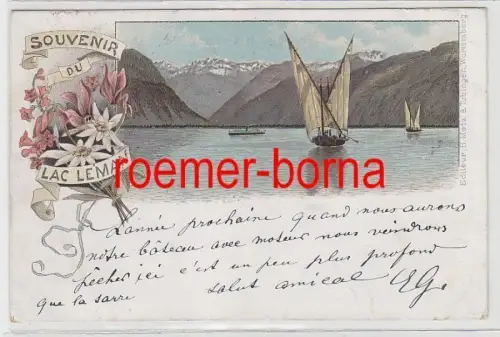 SOUVENIR
DU
LAC LEMAN
roemer-borna
L'année prochaine quand nous aurons
nôtre bâteau avec moteur nous viendrons
pêcher ici c'est un peu plus profond
que la sarre salut amical EG.